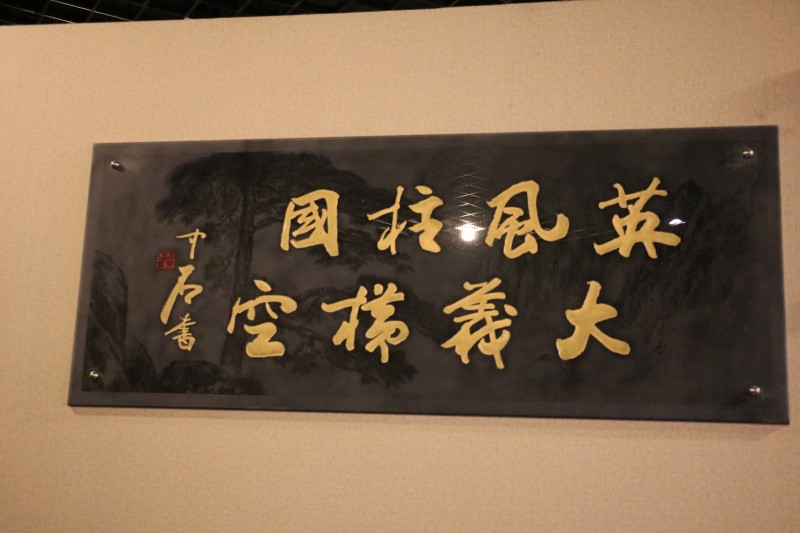 英風柱國
大義梯空
中石書